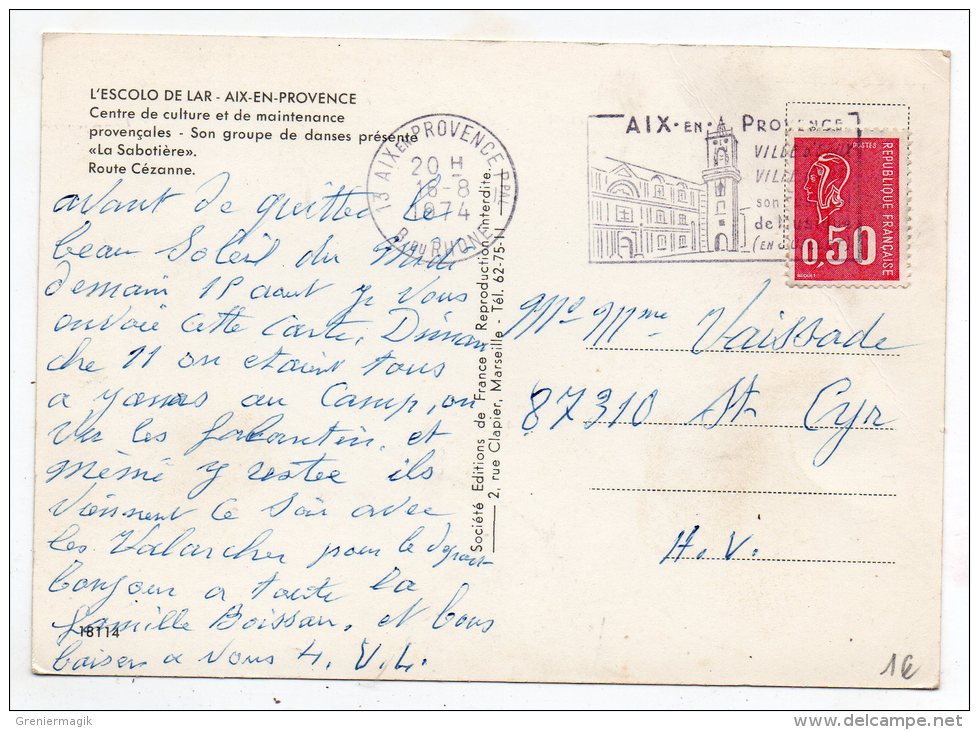 L'ESCOLO DE LAR - AIX-EN-PROVENCE
Centre de culture et de maintenance
provençales - Son groupe de danses présente
«La Sabotière».
Route Cézanne.
13 AIX EN PROVENCE P.PAL
20 H
16-8
1974
B. DU RHONE
AIX-EN-PROVENCE
VILLE D'
VILLE
son
de Mus
(EN
POSTES
REPUBLIQUE FRANÇAISE
0,50
BEQUET
avant de quitter le
beau Soleil du Midi
demain 1P aout Y Vous
envoie Cette Carte, Diman
che 11 on etaient tous
a au Camp, on
Vu les et
même y restee ils
Viennent Ce Soir avec
les pour le depart
bonjour a toute la
famille Boissou, et bons
baisers a Vous 4. V.L.
18114
Société Editions de France Reproduction interdite.
2, rue Clapier, Marseille - Tél. 62-75-11
Mr Mme Vaissade
87310 St Cyr
H.V.
1€
Greniermagik
www.delcampe.net